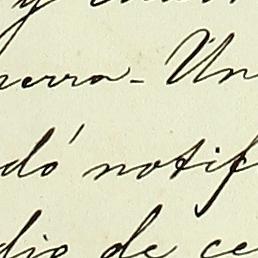 y
erra - Un
dó notif
dio de ce